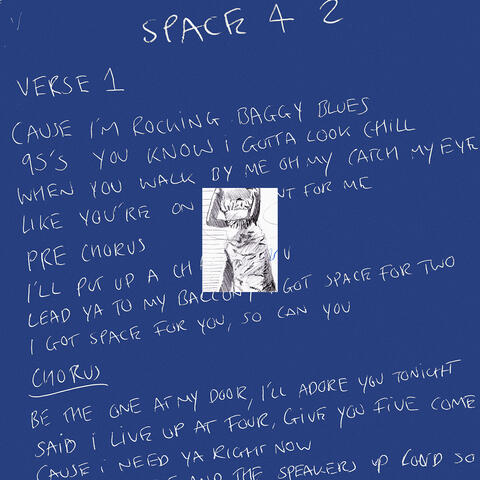 SPACE 4 2
VERSE 1
CAUSE I'M ROCKING BAGGY BLUES
95'S YOU KNOW i GOTTA LOOK CHILL
WHEN YOU WALK BY ME OH MY CATCH MY EYE
LIKE YOU'RE ON FOR ME
PRE CHORUS
I'LL PUT UP A
LEAD YA TO MY BALCONY I GOT SPACE FOR TWO
I GOT SPACE FOR YOU, SO CAN YOU
CHORUS
BE THE ONE AT MY DOOR, I'LL ADORE YOU TONIGHT
SAID i LIVE UP AT FOUR, GIVE YOU FIVE COME
CAUSE i NEED YA RIGHT NOW
AND THE SPEAKERS UP LOUD SO